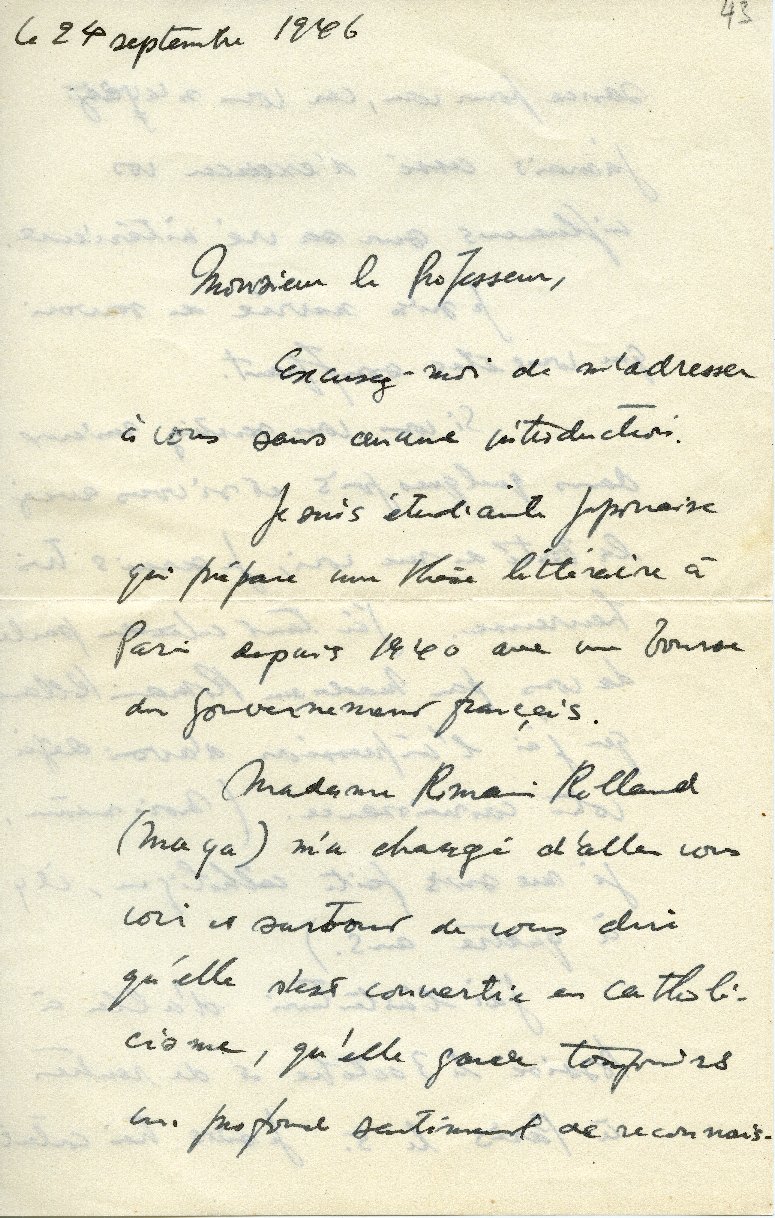 43
le 24 septembre 1946
Monsieur le Professeur,
Excusez-moi de m'adresser
à vous sans aucune introduction.
Je suis étudiante japonaise
qui prépare une thèse littéraire à
Paris depuis 1940 avec une bourse
du gouvernement français.
Madame Romain Rolland
(Maya) m'a chargé d'aller vous
voir et surtout de vous dire
qu'elle s'est convertie en catholi-
cisme, qu'elle garde toujours
un profond sentiment de reconnais-